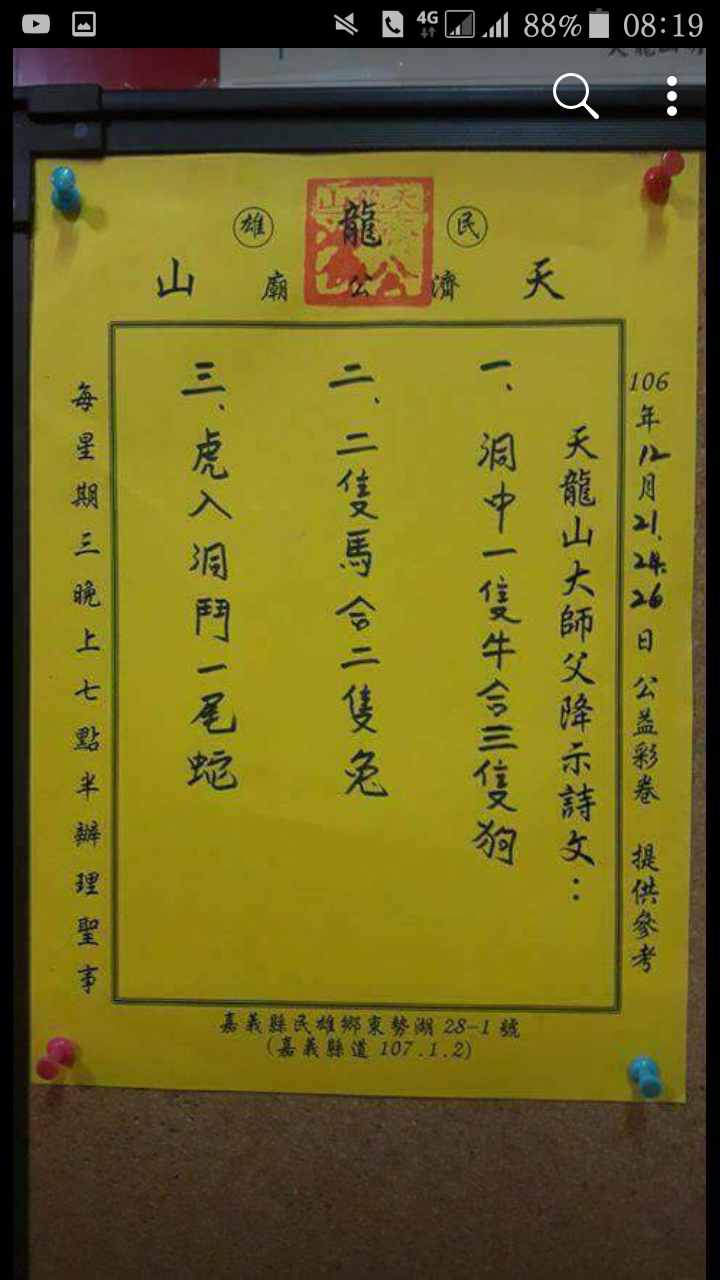 4G 88% 08:19
民 龍 雄
天 濟 公 廟 山
106年12月21.24.26日 公益彩卷 提供參考
天龍山大師父降示詩文：
一、洞中一隻牛合三隻狗
二、二隻馬合二隻兔
三、虎入洞鬥一尾蛇
每星期三晚上七點半辦理聖事
嘉義縣民雄鄉東勢湖 28-1 號
(嘉義縣道 107.1.2)